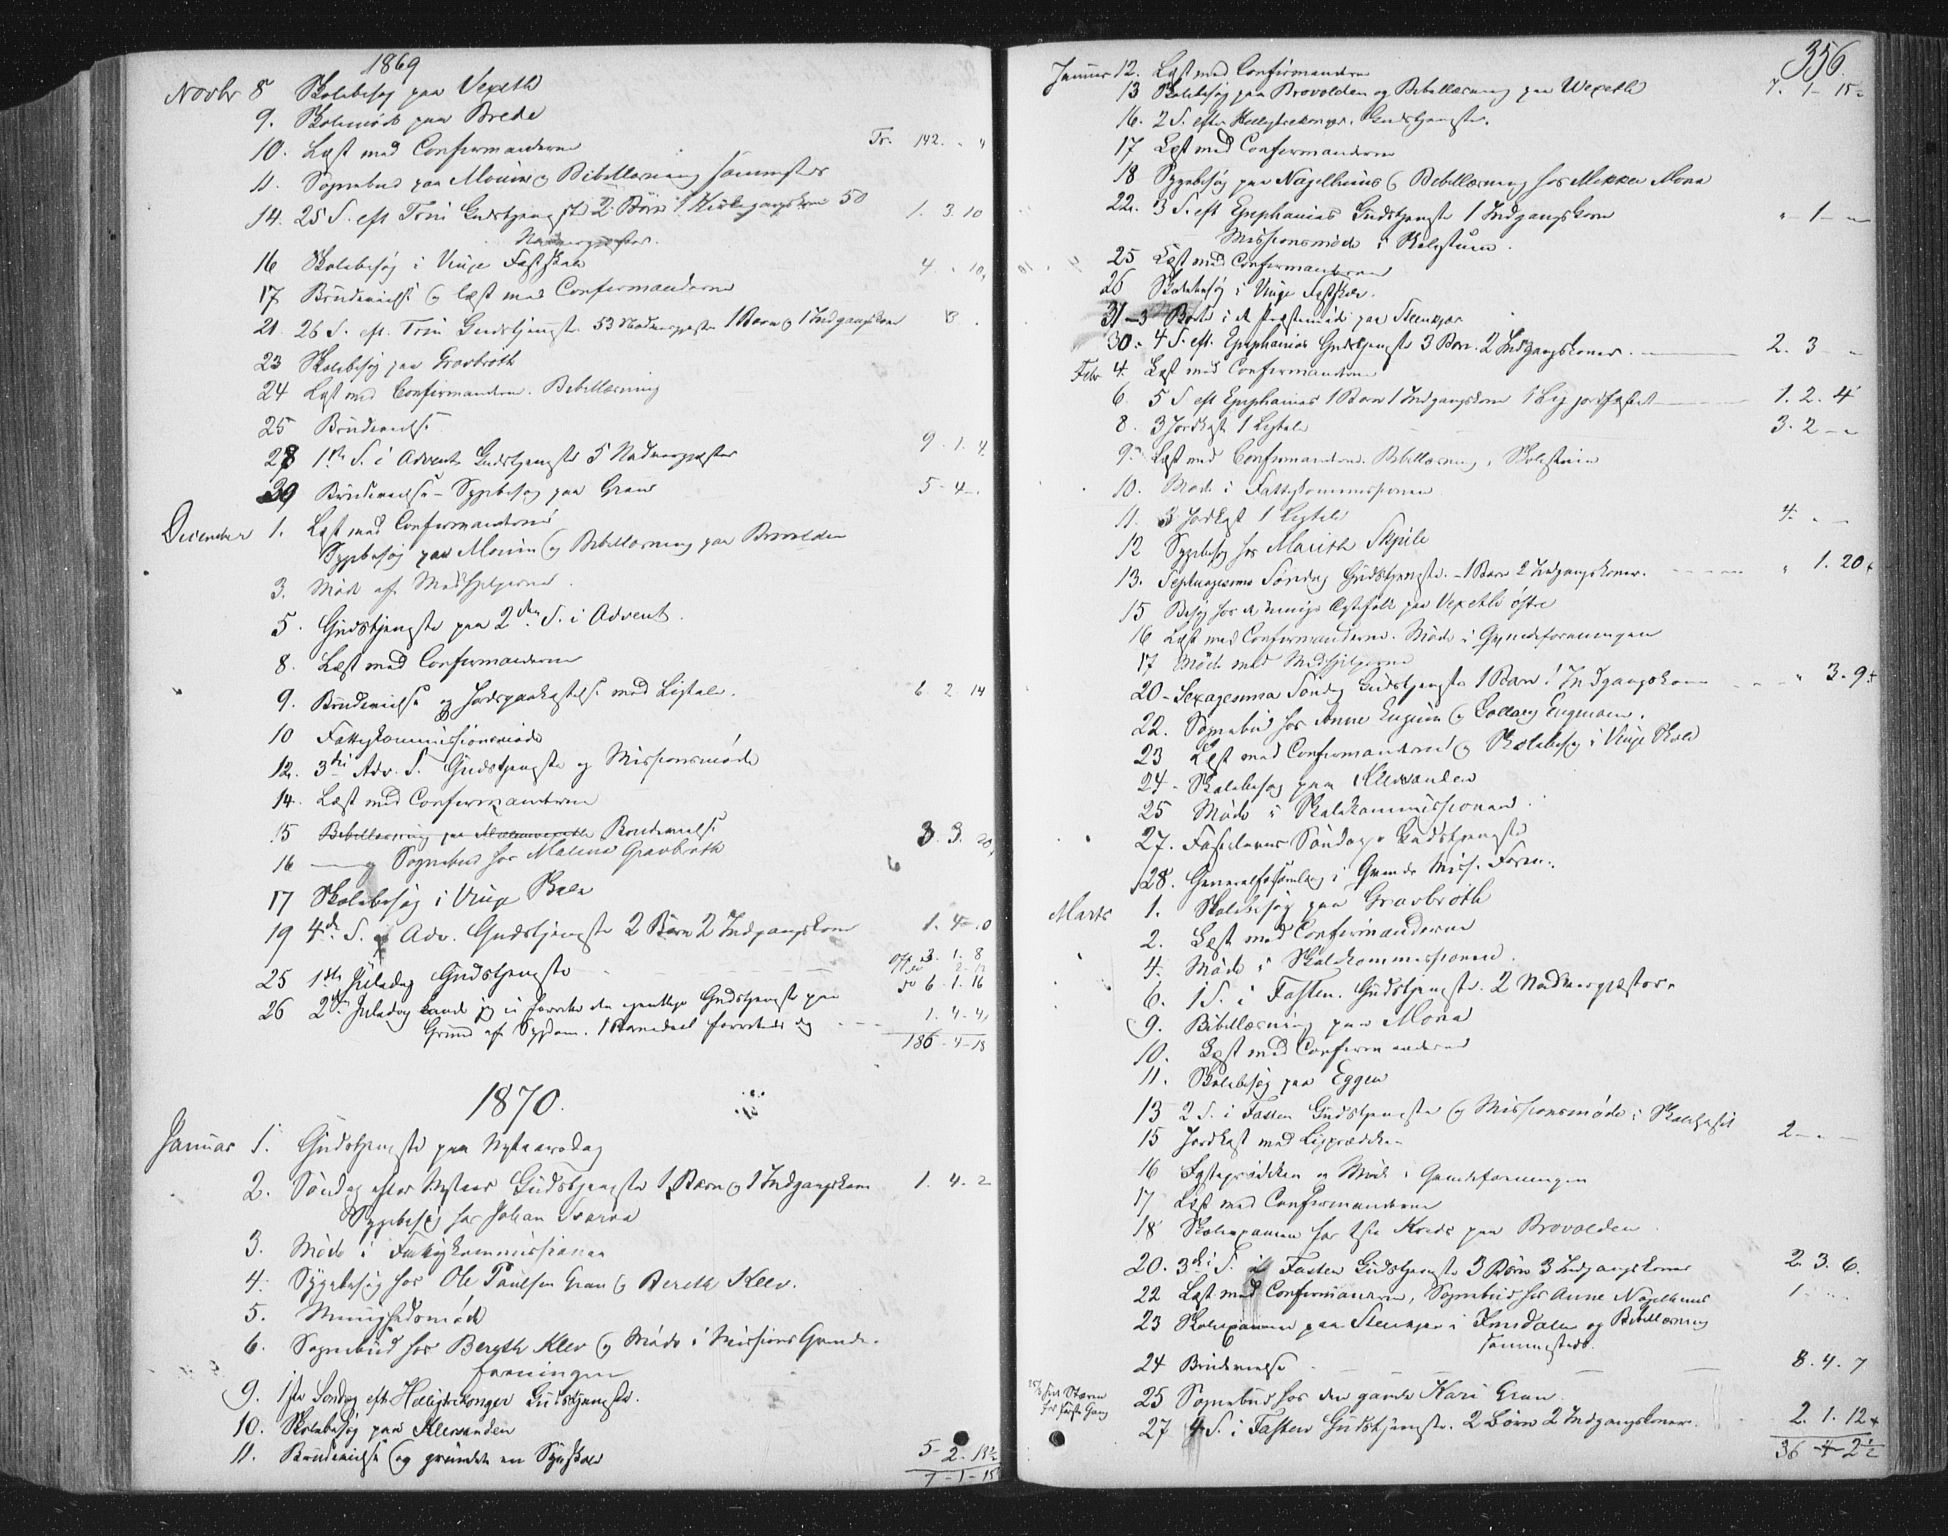 1869
Novbr 8 Skolebesøg paa Vexeth
9. Skolemøde paa Brede
10. Læst med Confirmanderne Tr. 142. - "
11. Sognebud paa Moum og Bibellæsning sammesteds
14. 25 S. eft Trin Gudstjeneste 2 Børn 1 Kirkegangskone 50 1. 3. 10
Nadvergjester.
16 Skolebesøg i Vuje Fastskole 4 - 10,
17 Brudevielse og læst med Confirmanderne
21. 26 S. eft. Trin Gudstjeneste 53 Nadvergjester 1 Barn og 1 Indgangskone 3 .
23 Skolebesøg paa Gravbrøth
24 Læst med Confirmanderne. Bibellæsning
25 Brudevielse
28 1ste S. i Advent Gudstjeneste 5 Nadvergjester 9. 1. 4.
30 Brudevielse - Sygebesøg paa Gran 5 - 4 -
December 1. Læst med Confirmanderne
Sygebesøg paa Moum og Bibellæsning paa Brovolden
3. Møde af Medhjelperne.
5. Gudstjeneste paa 2den S. i Advent.
8. Læst med Confirmanderne
9. Brudevielse og Jordspaakastelse med Ligtale. 6 2 14
10 Fattigkommissionsmøde
12. 3die Adv. S. Gudstjeneste og Missionsmøde
14. Læst med Confirmanderne
15 Bibellæsning paa Brudevielse 3. 3. 20,
16 og Sognebud hos Malene Gravbrøth
17 Skolebesøg i Vuje Skole
19 4de S. i Adv. Gudstjeneste 2 Børn 2 Indgangskoner 1. 4 - 0
25 1ste Juledag Gudstjeneste Off. 3. 1. 8
26 2den Juledag kunde jeg ei forrette den egentlige Gudstjeneste paa 6 - 1. 16
Grund af Sygdom. 1 Barnedaab forrettede jeg 1. 4. 4,
186 - 4 - 18
1870.
Januar 1. Gudstjeneste paa Nytaarsdag
2. Søndag efter Nytaar Gudstjeneste 1 Barn og 1 Indgangskone 1. 4. 2
Sygebesøg hos Johan Svarva
3. Møde i Fattigkommissionen
4. Sygebesøg hos Ole Paulsen Gran og Bereth Klev.
5. Menighedsmøde
6. Sognebud hos Bereth Klev og Møde i Missions Qvinde-
foreningen
9. 1ste Søndag eft Helligtrekonger Gudstjeneste.
10. Skolebesøg paa Klevanden
11. Brudevielse og grundet en Synskole 5 - 2. 15½
7 - 1 - 15
356.
Januar 12. Læst med Confirmanderne
13 Skolebesøg paa Brovolden og Bibellæsning paa Wexeth 7. 1 - 15½
16. 2 S. efter Helligtrekonger. Gudstjeneste.
17 Læst med Confirmanderne
18 Sygebesøg paa Nagelhuus og Bibellæsning hos Mikkel Mona
22. 3 S. eft Epiphanias Gudstjeneste 1 Indgangskone " - 1 - "
Missionsmøde i Skolestuen.
25 Læst med Confirmanderne
26 Skolebesøg i Vuje Fastskole.
31 - 3 Borte i et Præstemøde paa Steenkjær
30 - 4 S. eft. Epiphanias Gudstjeneste 3 Børn. 2 Indgangskoner. 2. 3 - "
Febr 4. Læst med Confirmanderne
6. 5 S eft Epiphanias 1 Barn 1 Indgangskone 1 Lig jordfæstet 1. 2. 4
8. 3 Jordkast 1 Ligtale 3. 2 - "
9. Læst med Confirmanderne. Bibellæsning i Skolestuen
10. Møde i Fattigkommissionen
11. 3 Jordkast 1 Ligtale 4. - "
12 Sygebesøg hos Marith Skjule
13. Septuagesima Søndag Gudstjeneste. - 1 Barn 2 Indgangskoner. " 1. 20
15 Besøg hos et uenige Ægtefolk paa Vexethe østre
16 Læst med Confirmanderne. Møde i Qvindeforeningen
17 Møde med Medhjelperne
20 - Sexagesima Søndag Gudstjeneste 1 Barn 1 Indgangskone " 3 - 9
22. Sognebud hos Anne og
23 Læst med Confirmanderne og Skolebesøg i Vuje Skole
24 - Skolebesøg paa Klevanden
25 Møde i Skolekommissionen.
27. Fastelavns Søndags Gudstjeneste
28. Generalforsamling i Qvinde Miss. Foren.
Marts 1. Skolebesøg paa Gravbrøth
2. Læst med Confirmanderne
4. Møde i Skolekommissionen.
6. 1 S. i Fasten. Gudstjeneste. 2 Nadvergjæster.
9. Bibellæsning paa Mona
10. Læst med Confirmanderne
11. Skolebesøg paa Eggen
13 2 S. i Fasten Gudstjeneste og Missionsmøde i Skolehuset
15 Jordkast med Ligprædiken 2 - " -
16 Fasteprædiken og Møde i Qvindeforeningen
17 Læst med Confirmanderne
18 Skolexamen for 1ste Kreds paa Brovolden
20. 3die S. i Fasten Gudstjeneste 3 Børn 3 Indgangskoner 2. 3. 6.
22 Læst med Confirmanderne, Sognebud hos Anne Nagelhuus 1
23 Skolexamen paa Steenkjær i og Bibellæsning
sammesteds.
24 Brudevielse 8. 4. 7
25 Sognebud hos den gamle Kari Gran
27 4 S. i Fasten Gudstjeneste. 2 Børn 2 Indgangskoner. 2. 1. 12
36 - 4 - 2½